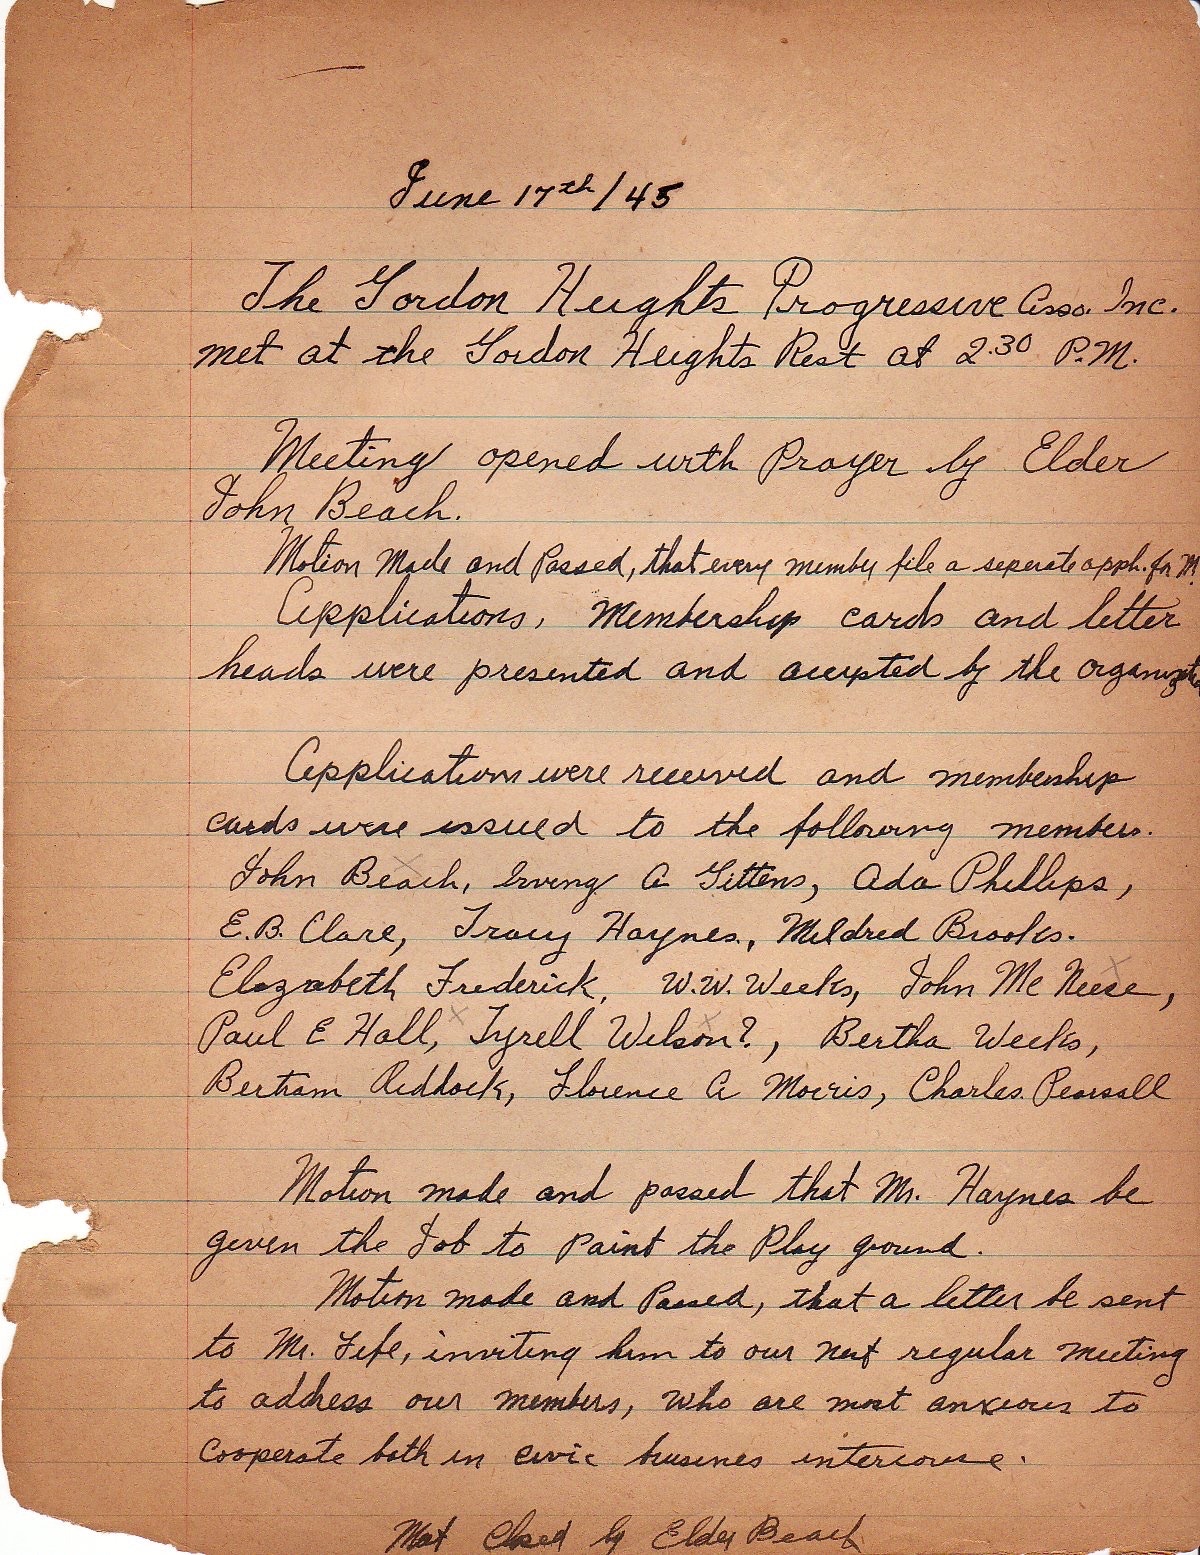 June 17th/45
The Gordon Heights Progressive Asso. Inc.
met at the Gordon Heights Rest at 2.30 P.M.
Meeting opened with Prayer by Elder
John Beach.
Motion Made and Passed, that every member file a seperate appli. for M.
Applications, Membership cards and letter
heads were presented and accepted by the organization
Applications were received and membership
cards were issued to the following members.
John Beach, Irving A Gittens, Ada Phillips,
E.B. Clare, Tracy Haynes, Mildred Brooks.
Elizabeth Frederick, W.W. Weeks, John Mc Neese,
Paul E Hall, Tyrell Wilson?, Bertha Weeks,
Bertram Riddock, Florence A Morris, Charles Pearsall
Motion made and passed that Mr. Haynes be
given the Job to Paint the Play ground.
Motion made and Passed, that a letter be sent
to Mr. Fife, inviting him to our next regular meeting
to address our members, who are most anxious to
cooperate both in civic busines intercourse.
Closed by Elder Beach